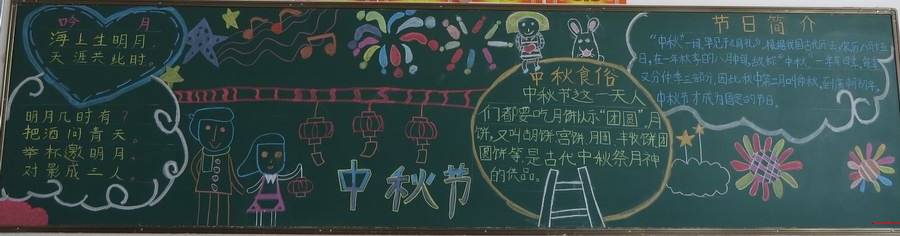 吟 月
海上生明月,
天涯共此时.
明月几时有?
把酒问青天。
举杯邀明月。
对影成三人。
中秋节
中秋食俗
中秋节这一天人
们都要吃月饼以示“团圆”月
饼,又叫胡饼.宫饼.月团.丰收饼团
圆饼等,是古代中秋祭月神
的供品。
节日简介
“中秋”一词,早见于《周礼》,根据我国古代历法,农历八月十五
日,在一年秋季的八月中旬,故称“中秋”。一年有四季,每季
又分仲季三部分,因此秋中第二月叫仲秋,到唐朝初年,
中秋节才成为固定的节日。